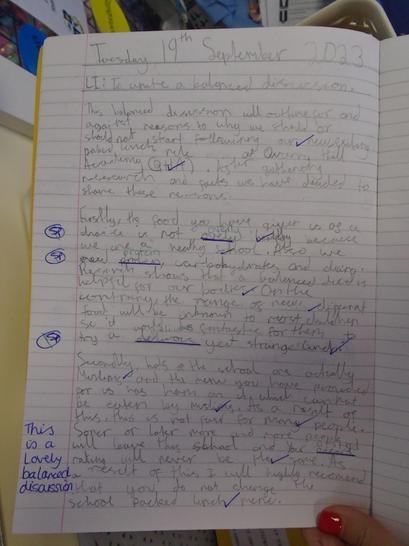 Tuesday 19th September 2023
LI: To write a balanced discussion.
This balanced discussion will outline for and
against reasons to why we should or
should not start following our new eating
packed lunch rule at Quarry Hill
Academy (QHA). After gathering
research and facts we have decided to
share these reasons.
Firstly, the food you have given us as a
choice is not because
we are a healthy school. Also we
need protein, carbohydrates and dairy.
Research shows that a balanced diet is
helpful for our bodies. On the
contrary the range of new, different
food will be unknown to most children
so it'd be fantastic for them
try a yet strange lunch.
Secondly, lots of the school are actually
Muslims and the menu you have provided
for us has ham on it, which cannot
be eaten by muslims. As a result of
this, this is not fair for many people.
Soner or later more and more people
will leave this school and our
rating will never be the same. As
a result of this, I will highly recomend
that you do not change the
school packed lunch menu.
This
is a
Lovely
balanced
discussion